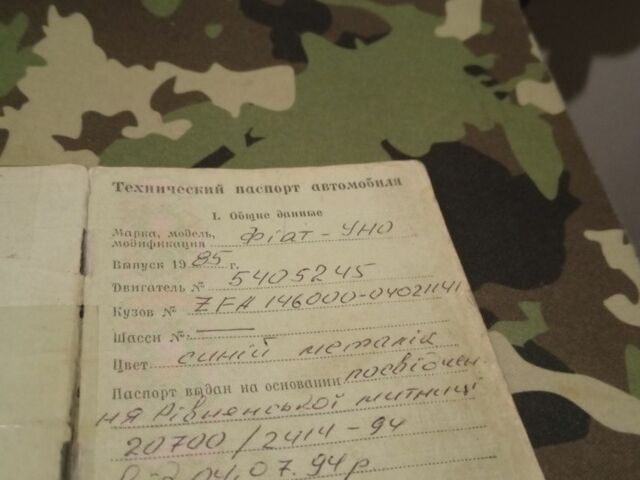 Технический паспорт автомобиля
1. Общие данные
Марка, модель,
модификация Фіат - УНО
Выпуск 19 85 г.
Двигатель № 5405245
Кузов № ZFA 146000-04021141
Шасси №: —
Цвет синій металік
Паспорт выдан на основании посвідчен-
ня Рівненської митниці
20700/2414-94
04.07.94р